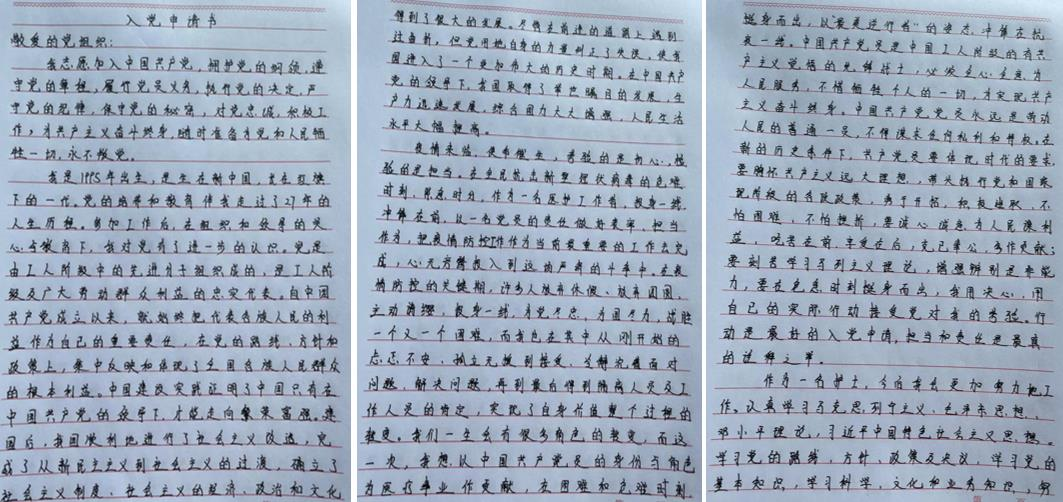 入党申请书
敬爱的党组织：
我志愿加入中国共产党，拥护党的纲领，遵
守党的章程，履行党员义务，执行党的决定，严
守党的纪律，保守党的秘密，对党忠诚，积极工
作，为共产主义奋斗终身，随时准备为党和人民牺
牲一切，永不叛党。
我是1995年出生，是生在新中国，长在红旗
下的一代。党的培养和教育伴我走过了27年的
人生历程。参加工作后，在组织和领导的关
心、教育下，我对党有了进一步的认识。党是
由工人阶级中的先进分子组织成的，是工人阶
级及广大劳动群众利益的忠实代表。自中国
共产党成立以来，就始终把代表各族人民的利
益作为自己的重要责任，在党的路线、方针和
政策上，集中反映和体现了全国各族人民群众
的根本利益。中国建设实践证明了中国只有在
中国共产党的领导下，才能走向繁荣富强。建
国后，我国顺利地进行了社会主义改造，完
成了从新民主主义到社会主义的过渡，确立了
社会主义制度，社会主义的经济、政治和文化
得到了很大的发展。尽管在前进的道路上遇到
过曲折，但党用她自身的力量纠正了失误，使我
国进入了一个更加伟大的历史时期。在中国共产
党的领导下，我国取得了举世瞩目的发展，生
产力迅速发展，综合国力大大增强，人民生活
水平大幅提高。
疫情来临，使命催生，考验的是初心，检
验的是担当。在全民抗击新型冠状病毒的危难
时刻，紧急时分，作为一名医护工作者，投身一线，
冲锋在前，以一名党员的责任做好表率，担当
作为，把疫情防控工作作为当前最重要的工作去完
成，心无旁骛投入到这场严肃的斗争中。在疫
情防控的关键期，许多人放弃休假、放弃团圆，
主动请缨，投身一线，为党尽忠，为国尽力，战胜
一个又一个困难，而我也在其中从刚开始的
忐忑不安、孤立无援到接受、分解完看面对
问题，解决问题，再到最后得到隔离人员及工
作人员的肯定，实现了自身价值整个过程的
转变。我们一生会有很多角色的转变，而这
一次，我想以中国共产党员的身份与角色
为医疗事业作贡献，在困难和危难时刻，
挺身而出，以“最美逆行者”的姿态，冲锋在抗
疫一线。中国共产党员是中国工人阶级的有共
产主义觉悟的先锋战士，必须全心全意为
人民服务，不惜牺牲个人的一切，为实现共产
主义奋斗终身。中国共产党党员永远是劳动
人民的普通一员，不得谋求任何私利和特权。在
新的历史条件下，共产党员要体现时代的要求，
要胸怀共产主义远大理想，带头执行党和国家
现阶段的各项政策，勇于开拓，积极进取，不
怕困难，不怕挫折，要诚心诚意为人民谋利
益，吃苦在前，享受在后，克己奉公，多作贡献；
要刻苦学习马列主义理论，增强辨别是非能
力，要在危急时刻挺身而出，我用决心，用
自己的实际行动接受党对我的考验。行
动是最好的入党申请，把担当和责任是最真
的诠释之举。
作为一名护士，今后我会更加努力地工
作。认真学习马克思列宁主义、毛泽东思想、
邓小平理论，习近平中国特色社会主义思想。
学习党的路线，方针、政策及决议，学习党的
基本知识，学习科学、文化和业务知识，努